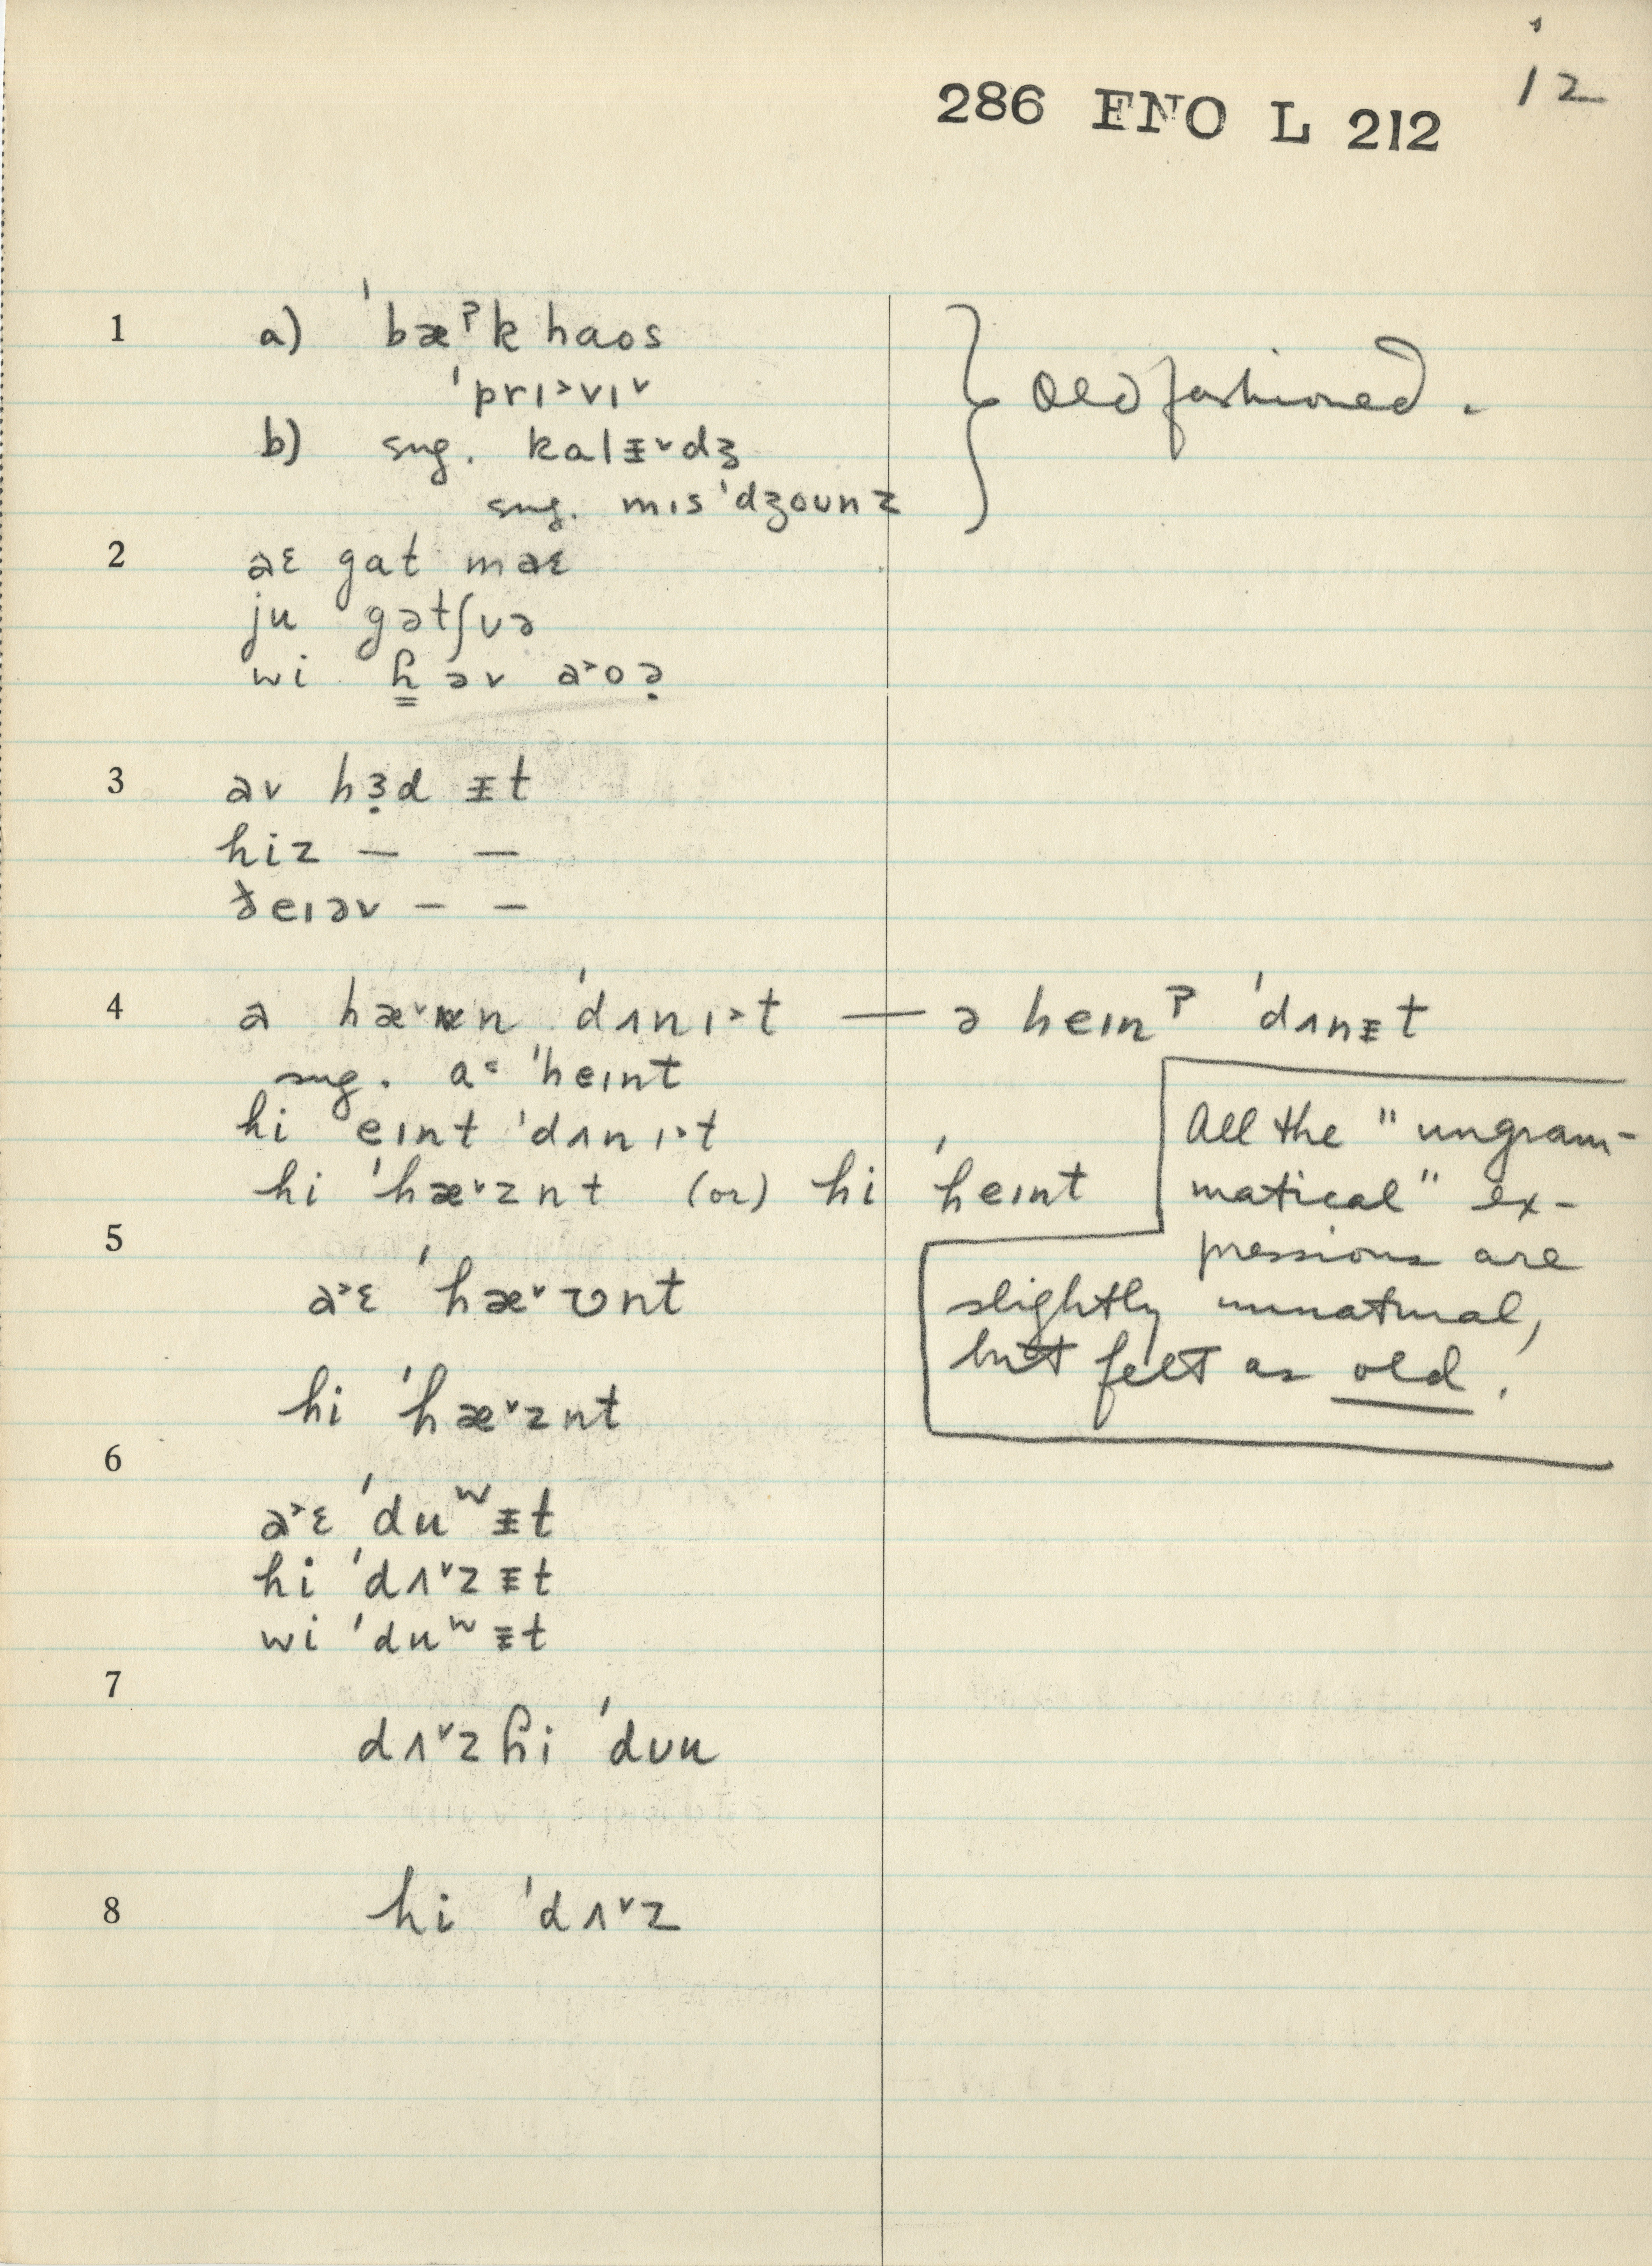 12
286 ENO L 212
1 a) ˈbæˀk haos
ˈprɪ˃vɪ˅
b) sug. kalᵻ˅dʒ
sug. mɪsˈdʒounz
} Old fashioned.
2 aɛ gat maɛ
ju gətʃʊə
wi ɦ̳əv a˃oə̣
3 av hɜ̣d ᵻt
hiz — —
ðeɪəv — —
4 a hæ˅n ˈdʌnɪ˃t — ə heɪnˀ ˈdʌnᵻt
sug. a˂ ˈheɪnt
hi eɪnt ˈdʌnɪ˃t
hi ˈhæ˅znt (or) hi ˈheɪnt
All the "ungram-
matical" ex-
pressions are
slightly unnatural,
but felt as old.
5
a˃ɛ ˈhæ˅ʋnt
hi ˈhæ˅znt
6
a˃ɛ ˈduʷᵻt
hi ˈdʌ˅zᵻt
wi ˈduʷᵻt
7
dʌ˅zɦi ˈdʊu
8 hi ˈdʌ˅z